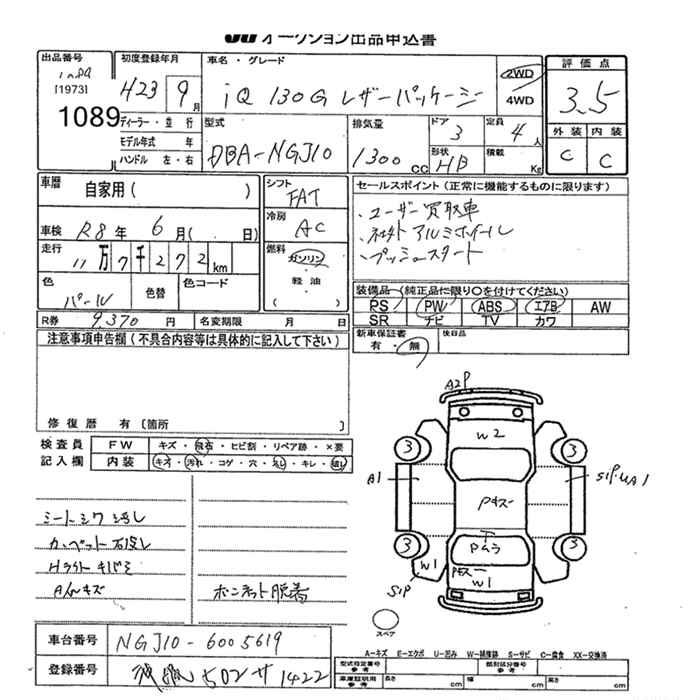 JU オークション出品申込書
出品番号 初度登録年月 車名・グレード 評価点
[1973] 1089
H23 9月 iQ 130G レザーパッケージ 2WD 4WD 3.5
ディーラー・並行 型式 排気量 ドア 定員 外装 内装
モデル年式 年 3 4人
ハンドル 左・右 DBA-NGJ10 1300cc 形状 HB 積載 Kg C C
車歴 自家用( ) シフト FAT セールスポイント(正常に機能するものに限ります)
車検 R8年 6月( 日) 冷房 AC ・ユーザー買取車
走行 11万7千272km ・社外アルミホイール
燃料 ガソリン・軽油・( ) ・プッシュスタート
色 パール 色替 色コード
装備品(純正品に限り○を付けてください)
PS PW ABS エアB AW
SR ナビ TV カワ
R券 9,370円 名変期限 月 日
新車保証書 有・無 後日品
注意事項申告欄(不具合内容等は具体的に記入して下さい)
修復歴 有 [箇所 ]
検査員 FW キズ・飛石・ヒビ割・リペア跡・×要
記入欄 内装 キズ・汚れ・コゲ・穴・スレ・キレ・
A2P
W2
3 3
A1 Pキズ
3 3
Pムラ
W1 Pキズ W1
スペア
シートシワ
カーペット
Hライトキバミ
キズ ボンネット脱着
A-キズ E-エクボ U-凹み W-補修跡 S-サビ C-腐食 XX-交換済
車台番号 NGJ10-6005619
登録番号 502 サ 1422
型式指定番号 参考 類別区分番号 参考
車庫証明用 参考 長さ cm 幅 cm 高さ cm